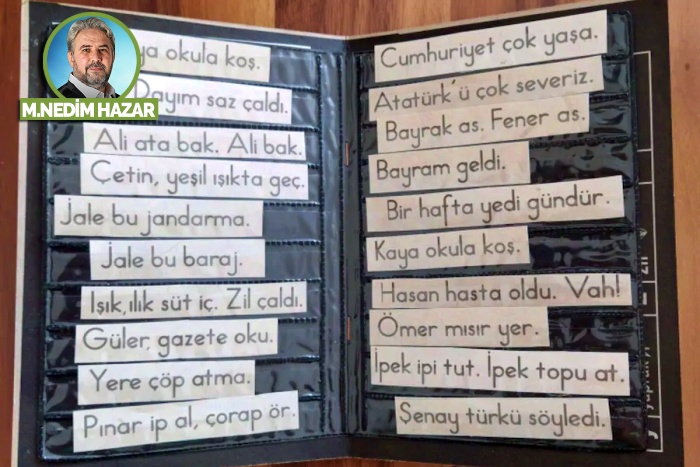 M.NEDİM HAZAR
ya okula koş.
Dayım saz çaldı.
Ali ata bak. Ali bak.
Çetin, yeşil ışıkta geç.
Jale bu jandarma.
Jale bu baraj.
Işık, ılık süt iç. Zil çaldı.
Güler, gazete oku.
Yere çöp atma.
Pınar ip al, çorap ör.
Cumhuriyet çok yaşa.
Atatürk'ü çok severiz.
Bayrak as. Fener as.
Bayram geldi.
Bir hafta yedi gündür.
Kaya okula koş.
Hasan hasta oldu. Vah!
Ömer mısır yer.
İpek ipi tut. İpek topu at.
Şenay türkü söyledi.